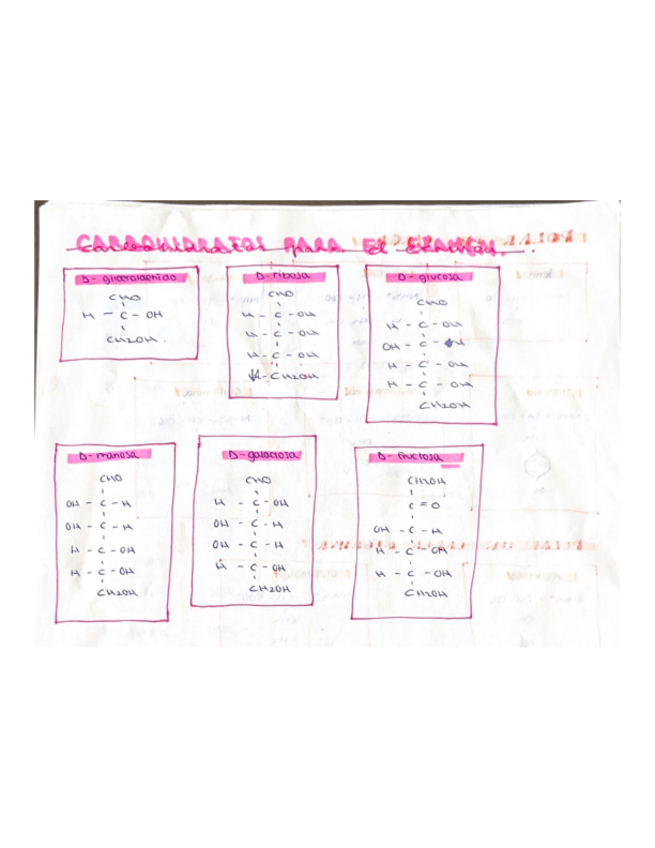 CARBOHIDRATOS PARA EL EXAMEN.
D-gliceraldehido
CHO
H - C - OH
CH2OH.
D-ribosa
CHO
H - C - OH
H - C - OH
H - C - OH
H-CH2OH
D-glucosa
CHO
H - C - OH
OH - C - H
H - C - OH
H - C - OH
CH2OH
D-manosa
CHO
OH - C - H
OH - C - H
H - C - OH
H - C - OH
CH2OH
D-galactosa
CHO
H - C - OH
OH - C - H
OH - C - H
H - C - OH
CH2OH
D-fructosa
CH2OH
C = O
OH - C - H
H - C - OH
H - C - OH
CH2OH